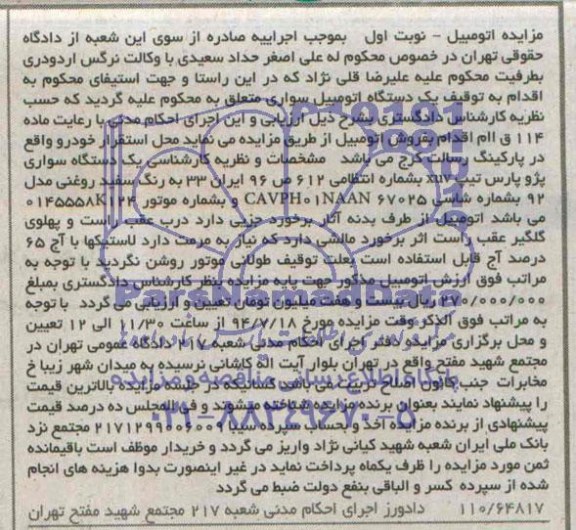 مزایده اتومبیل - نوبت اول بموجب اجراییه صادره از سوی این شعبه از دادگاه
حقوقی تهران در خصوص محکوم له علی اصغر حداد سعیدی با وکالت نرگس اردودری
بطرفیت محکوم علیه علیرضا قلی نژاد که در این راستا و جهت استیفای محکوم به
اقدام به توقیف یک دستگاه اتومبیل سواری متعلق به محکوم علیه گردید که حسب
نظریه کارشناس دادگستری بشرح ذیل ارزیابی و این اجرای احکام مدنی با رعایت ماده
۱۱۴ ق اام اقدام بفروش اتومبیل از طریق مزایده می نماید محل استقرار خودرو واقع
در پارکینگ رسالت کرج می باشد مشخصات و نظریه کارشناسی یک دستگاه سواری
پژو پارس تیپ xuv بشماره انتظامی ۶۱۲ ص ۹۶ ایران ۳۳ به رنگ سفید روغنی مدل
۹۲ بشماره شاسی CAVPH۰۱NAAN ۶۷۰۲۵ و بشماره موتور ۰۱۴۵۵۵۸K۱۲۴
می باشد اتومبیل از طرف بدنه آثار برخورد جزیی دارد درب عقب راست و پهلوی
گلگیر عقب راست اثر برخورد مالشی دارد که نیاز به مرمت دارد لاستیکها با آج ۶۵
درصد آج قابل استفاده است بعلت توقیف طولانی موتور روشن نگردید با توجه به
مراتب فوق ارزش اتومبیل مذکور جهت پایه مزایده بنظر کارشناس دادگستری بمبلغ
۲۷۰/۰۰۰/۰۰۰ ریال بیست و هفت میلیون تومان تعیین و ارزیابی می گردد با توجه
به مراتب فوق الذکر وقت مزایده مورخ ۹۴/۷/۱۸ از ساعت ۱۱/۳۰ الی ۱۲ تعیین
و محل برگزاری مزایده دفتر اجرای احکام مدنی شعبه ۲۱۷ دادگاه عمومی تهران در
مجتمع شهید مفتح واقع در تهران بلوار آیت اله کاشانی نرسیده به میدان شهر زیبا خ
مخابرات جنب کانون اصلاح تربیت می باشد کسانیکه در جلسه مزایده بالاترین قیمت
را پیشنهاد نمایند بعنوان برنده مزایده شناخته میشوند و فی المجلس ده درصد قیمت
پیشنهادی از برنده مزایده اخذ و بحساب سپرده سیبا مجتمع نزد
بانک ملی ایران شعبه شهید کیانی نژاد واریز می گردد و خریدار موظف است باقیمانده
ثمن مورد مزایده را ظرف یکماه پرداخت نماید در غیر اینصورت بدوا هزینه های انجام
شده از سپرده کسر و الباقی بنفع دولت ضبط می گردد
۱۱۰/۶۴۸۱۷ دادورز اجرای احکام مدنی شعبه ۲۱۷ مجتمع شهید مفتح تهران